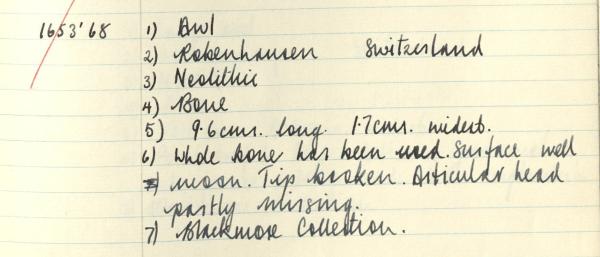 1653'68 1) Awl
2) Robenhausen Switzerland
3) Neolithic
4) Bone
5) 9.6 cms. long. 1.7 cms. widest.
6) Whole bone has been used. Surface well
7) moon. Tip broken. Articular head
partly missing.
7) Blackmore Collection.